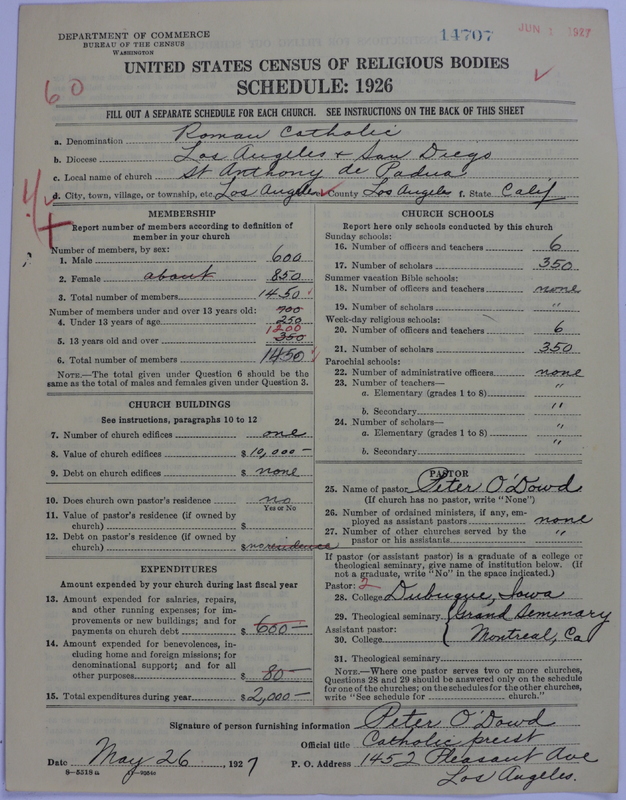 DEPARTMENT OF COMMERCE
BUREAU OF THE CENSUS
WASHINGTON
14707
JUN 1 1927
UNITED STATES CENSUS OF RELIGIOUS BODIES
SCHEDULE: 1926
60
FILL OUT A SEPARATE SCHEDULE FOR EACH CHURCH. SEE INSTRUCTIONS ON THE BACK OF THIS SHEET
a. Denomination Roman Catholic
b. Diocese Los Angeles + San Diego
c. Local name of church St Anthony de Padua
d. City, town, village, or township, etc. Los Angeles e. County Los Angeles f. State Calif
MEMBERSHIP
Report number of members according to definition of member in your church
Number of members, by sex:
1. Male 600
2. Female about 850
3. Total number of members 1450
Number of members under and over 13 years old: 700
4. Under 13 years of age 250
1200
5. 13 years old and over 350
6. Total number of members 1450
NOTE.—The total given under Question 6 should be the same as the total of males and females given under Question 3.
CHURCH BUILDINGS
See instructions, paragraphs 10 to 12
7. Number of church edifices one
8. Value of church edifices $10,000—
9. Debt on church edifices $ none
10. Does church own pastor's residence no
Yes or No
11. Value of pastor's residence (if owned by church) $
12. Debt on pastor's residence (if owned by church) $ no residence
EXPENDITURES
Amount expended by your church during last fiscal year
13. Amount expended for salaries, repairs, and other running expenses; for improvements or new buildings; and for payments on church debt $ 600—
14. Amount expended for benevolences, including home and foreign missions; for denominational support; and for all other purposes $ 80—
15. Total expenditures during year $2,000—
CHURCH SCHOOLS
Report here only schools conducted by this church
Sunday schools:
16. Number of officers and teachers 6
17. Number of scholars 350
Summer vacation Bible schools:
18. Number of officers and teachers none
19. Number of scholars "
Week-day religious schools:
20. Number of officers and teachers 6
21. Number of scholars 350
Parochial schools:
22. Number of administrative officers none
23. Number of teachers—
a. Elementary (grades 1 to 8) "
b. Secondary "
24. Number of scholars—
a. Elementary (grades 1 to 8) "
b. Secondary "
PASTOR
25. Name of pastor Peter O'Dowd
(If church has no pastor, write "None")
26. Number of ordained ministers, if any, employed as assistant pastors none
27. Number of other churches served by the pastor or his assistants "
If pastor (or assistant pastor) is a graduate of a college or theological seminary, give name of institution below. (If not a graduate, write "No" in the space indicated.)
Pastor: 2
28. College Dubuque, Iowa
29. Theological seminary Grand Seminary
Assistant pastor:
30. College Montreal, Ca
31. Theological seminary
NOTE.—Where one pastor serves two or more churches, Questions 28 and 29 should be answered only on the schedule for one of the churches; on the schedules for the other churches, write "See schedule for church."
Signature of person furnishing information Peter O'Dowd
Official title Catholic priest
Date May 26, 1927 P. O. Address 1452 Pleasant Ave
Los Angeles.
8—5518a